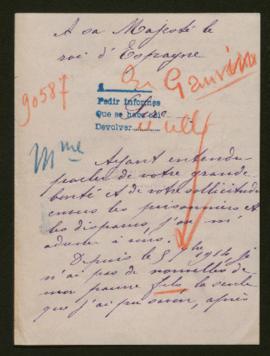 A sa Majesté le
roi d'Espagne
90587
Pedir informes
Que se haga
Devolver
Mme
Ayant entendu
parler de votre grande
bonté et de votre sollicitude
envers les prisonniers et
les disparus, j'ai m'
à vous.
Depuis le 5 7bre 1914 je
n'ai pas de nouvelles de
mon pauvre fils, la seule
que j'ai pu avoir, après